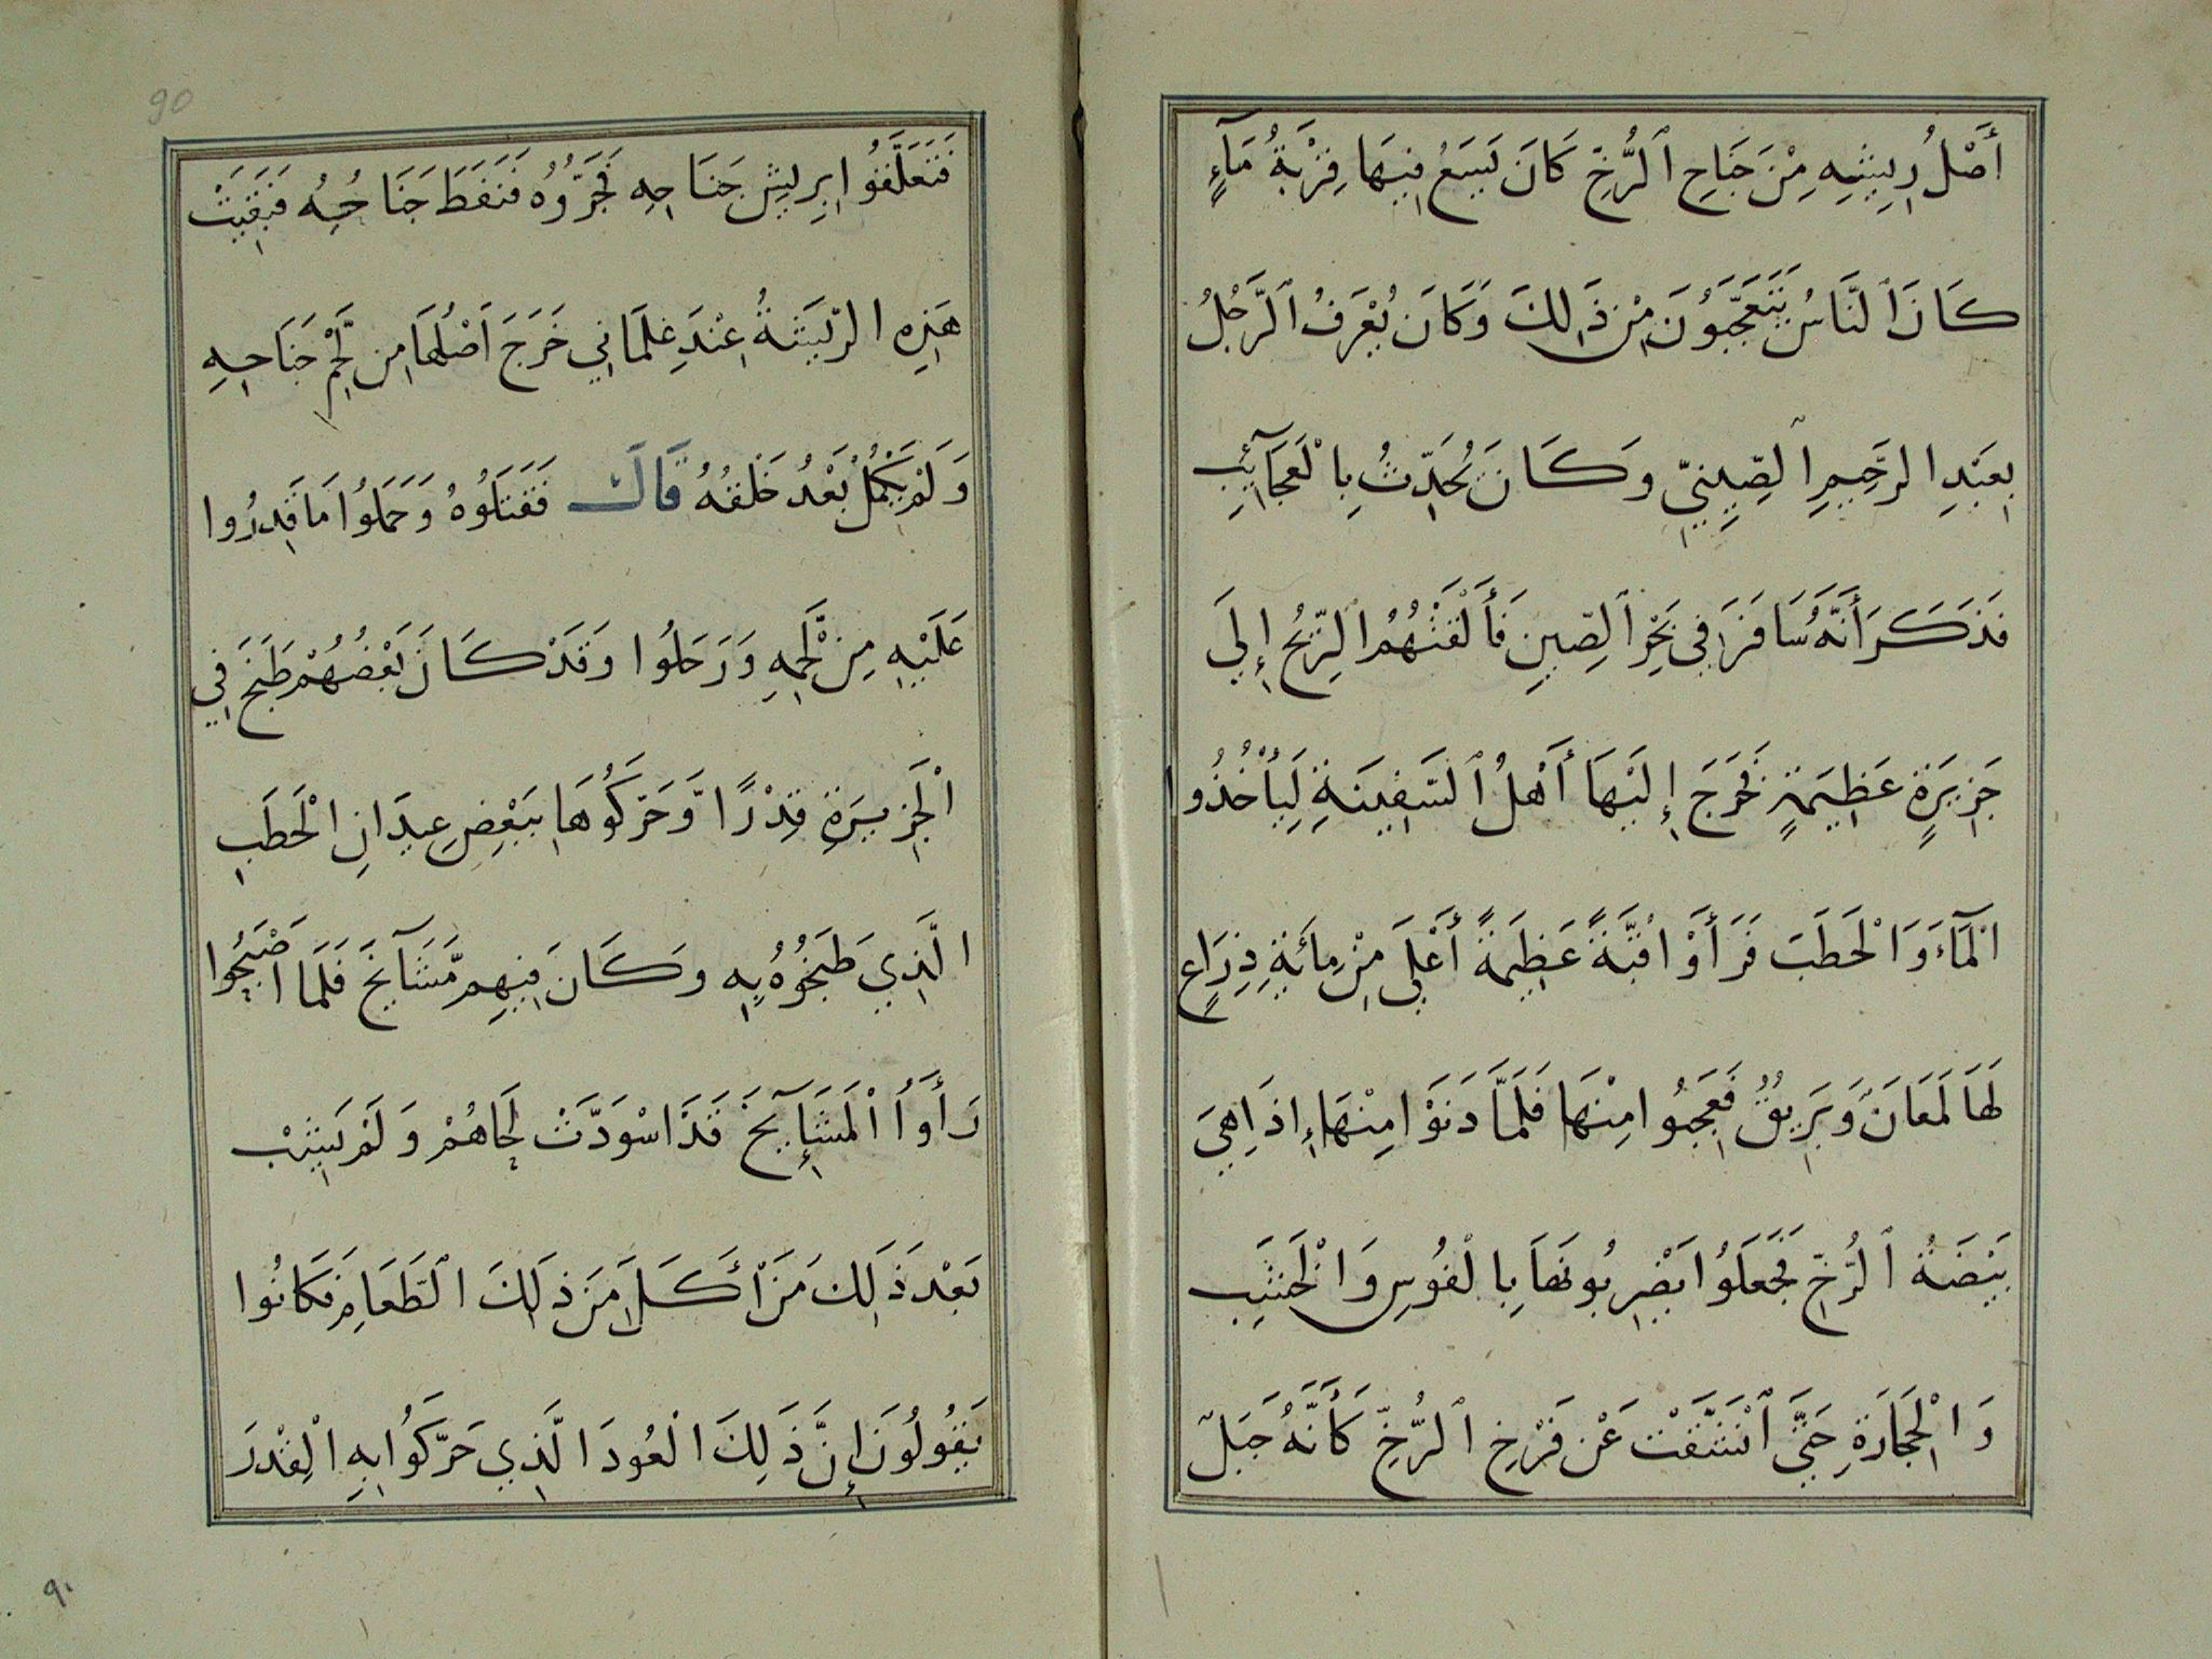 أَصْلُ رِيشِهِ مِنْ جَنَاحِ ٱلرُّخِّ كَانَ يَسَعُ فِيهَا قِرْبَةُ مَآءٍ
كَانَ ٱلنَّاسُ يَتَعَجَّبُونَ مِنْ ذَلِكَ وَكَانَ يُعْرَفُ ٱلرَّجُلُ
بِعَبْدِ الرَّحِيمِ ٱلصِّينِيِّ وَكَانَ يُحَدِّثُ بِالْعَجَآئِبِ
فَذَكَرَ أَنَّهُ سَافَرَ فِي بَحْرِ ٱلصِّينِ فَأَلْقَتْهُمُ ٱلرِّيحُ إِلَي
جَزِيرَةٍ عَظِيمَةٍ فَخَرَجَ إِلَيْهَا أَهْلُ ٱلسَّفِينَةِ لِيَأْخُذُوا
الْمَآءَ وَالْحَطَبَ فَرَأَوْا قُبَّةً عَظِيمَةً أَعْلَي مِنْ مِائَةِ ذِرَاعٍ
لَهَا لَمَعَانٌ وَبَرِيقٌ فَعَجِبُوا مِنْهَا فَلَمَّا دَنَوْا مِنْهَا إِذَا هِيَ
بَيْضَةُ ٱلرُّخِّ فَجَعَلُوا يَضْرِبُونَهَا بِالْفُوسِ وَالْخَشَبِ
وَالْحِجَارَةِ حَتَّي ٱنْشَقَّتْ عَنْ فَرْخِ ٱلرُّخِّ كَأَنَّهُ جَبَلٌ
90
فَتَعَلَّقُوا بِرِيشِ جَنَاحِهِ فَجَرُّوهُ فَنَفَطَ جَنَاحُهُ فَبَقِيَتْ
هَذِهِ الرِّيشَةُ عِنْدَ غِلْمَانِي خَرَجَ أَصْلُهَا مِن لَحْمِ جَنَاحِهِ
وَلَمْ يَكْمُلْ بَعْدُ خَلْقُهُ قَالَ فَقَتَلُوهُ وَحَمَلُوا مَا قَدِرُوا
عَلَيْهِ مِنْ لَحْمِهِ وَرَحَلُوا وَقَدْ كَانَ بَعْضُهُمْ طَبَخَ فِي
الْجَزِيرَةِ قِدْرًا وَّحَرَّكُوهَا بِبَعْضِ عِيدَانِ الْحَطَبِ
الَّذِي طَبَخُوهُ بِهِ وَكَانَ فِيهِم مَّشَآيَخُ فَلَمَّا اَصْبَحُوا
رَأَوُا الْمَشَآيِخَ قَدْ اسْوَدَّتْ لِحَاهُمْ وَلَمْ يَشِبْ
بَعْدَ ذَلِكَ مَنْ أَكَلَ مِنْ ذَلِكَ الطَّعَامِ فَكَانُوا
يَقُولُونَ إِنَّ ذَلِكَ الْعُودَ الَّذِي حَرَّكُوا بِهِ الْقِدْرَ
٩٠